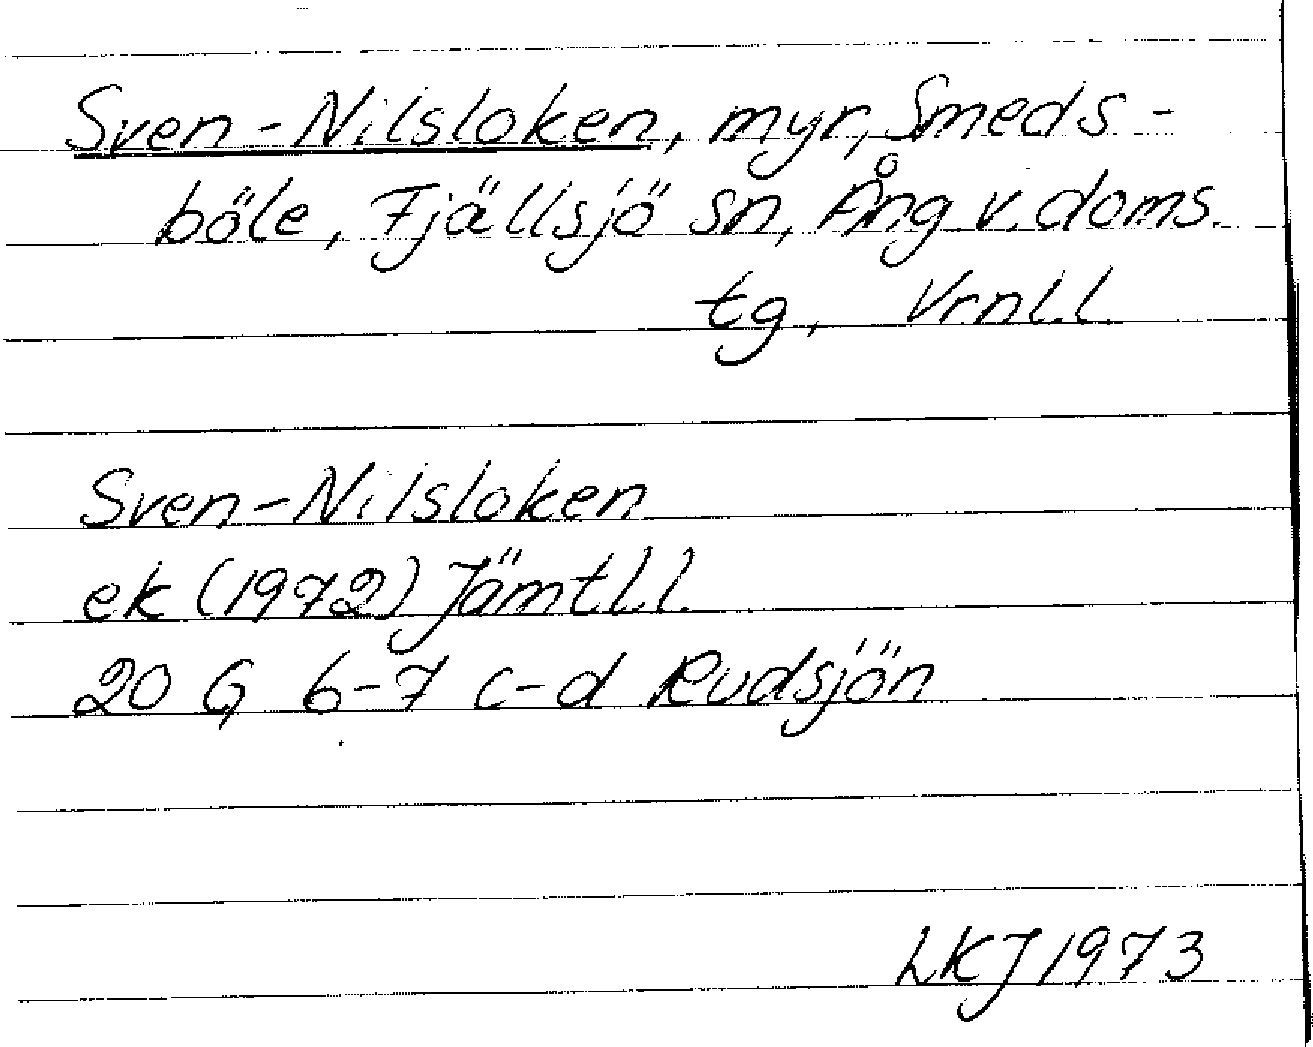 Sven-Nilsloken, myr, Smeds-
böle, Fjällsjö sn, Ång v. doms.
tg, Vrnl.l.
Sven-Nilsloken
ek (1972) Jämtl.l.
20 G 6-7 c-d Rudsjön
LKJ 1973